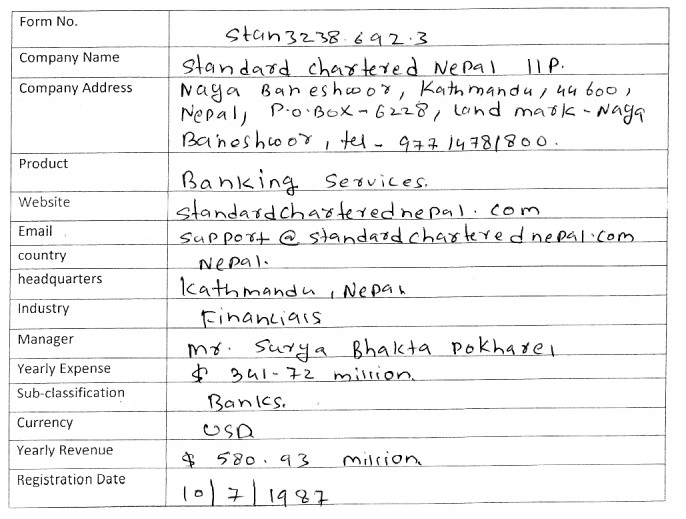 Form No. Stan3238.692.3
Company Name Standard chartered Nepal llP.
Company Address Naya Baneshwor, Kathmandu, 44600,
Nepal, P.O.Box-6228, land mark-Naya
Baneshwor, tel - 97714781800.
Product Banking Services.
Website standardcharterednepal.com
Email support@standardcharterednepal.com
country Nepal.
headquarters Kathmandu, Nepal
Industry Financials
Manager Mr. Surya Bhakta Pokharel
Yearly Expense $ 341-72 million
Sub-classification Banks.
Currency USD
Yearly Revenue $ 580.93 million
Registration Date 10/7/1987